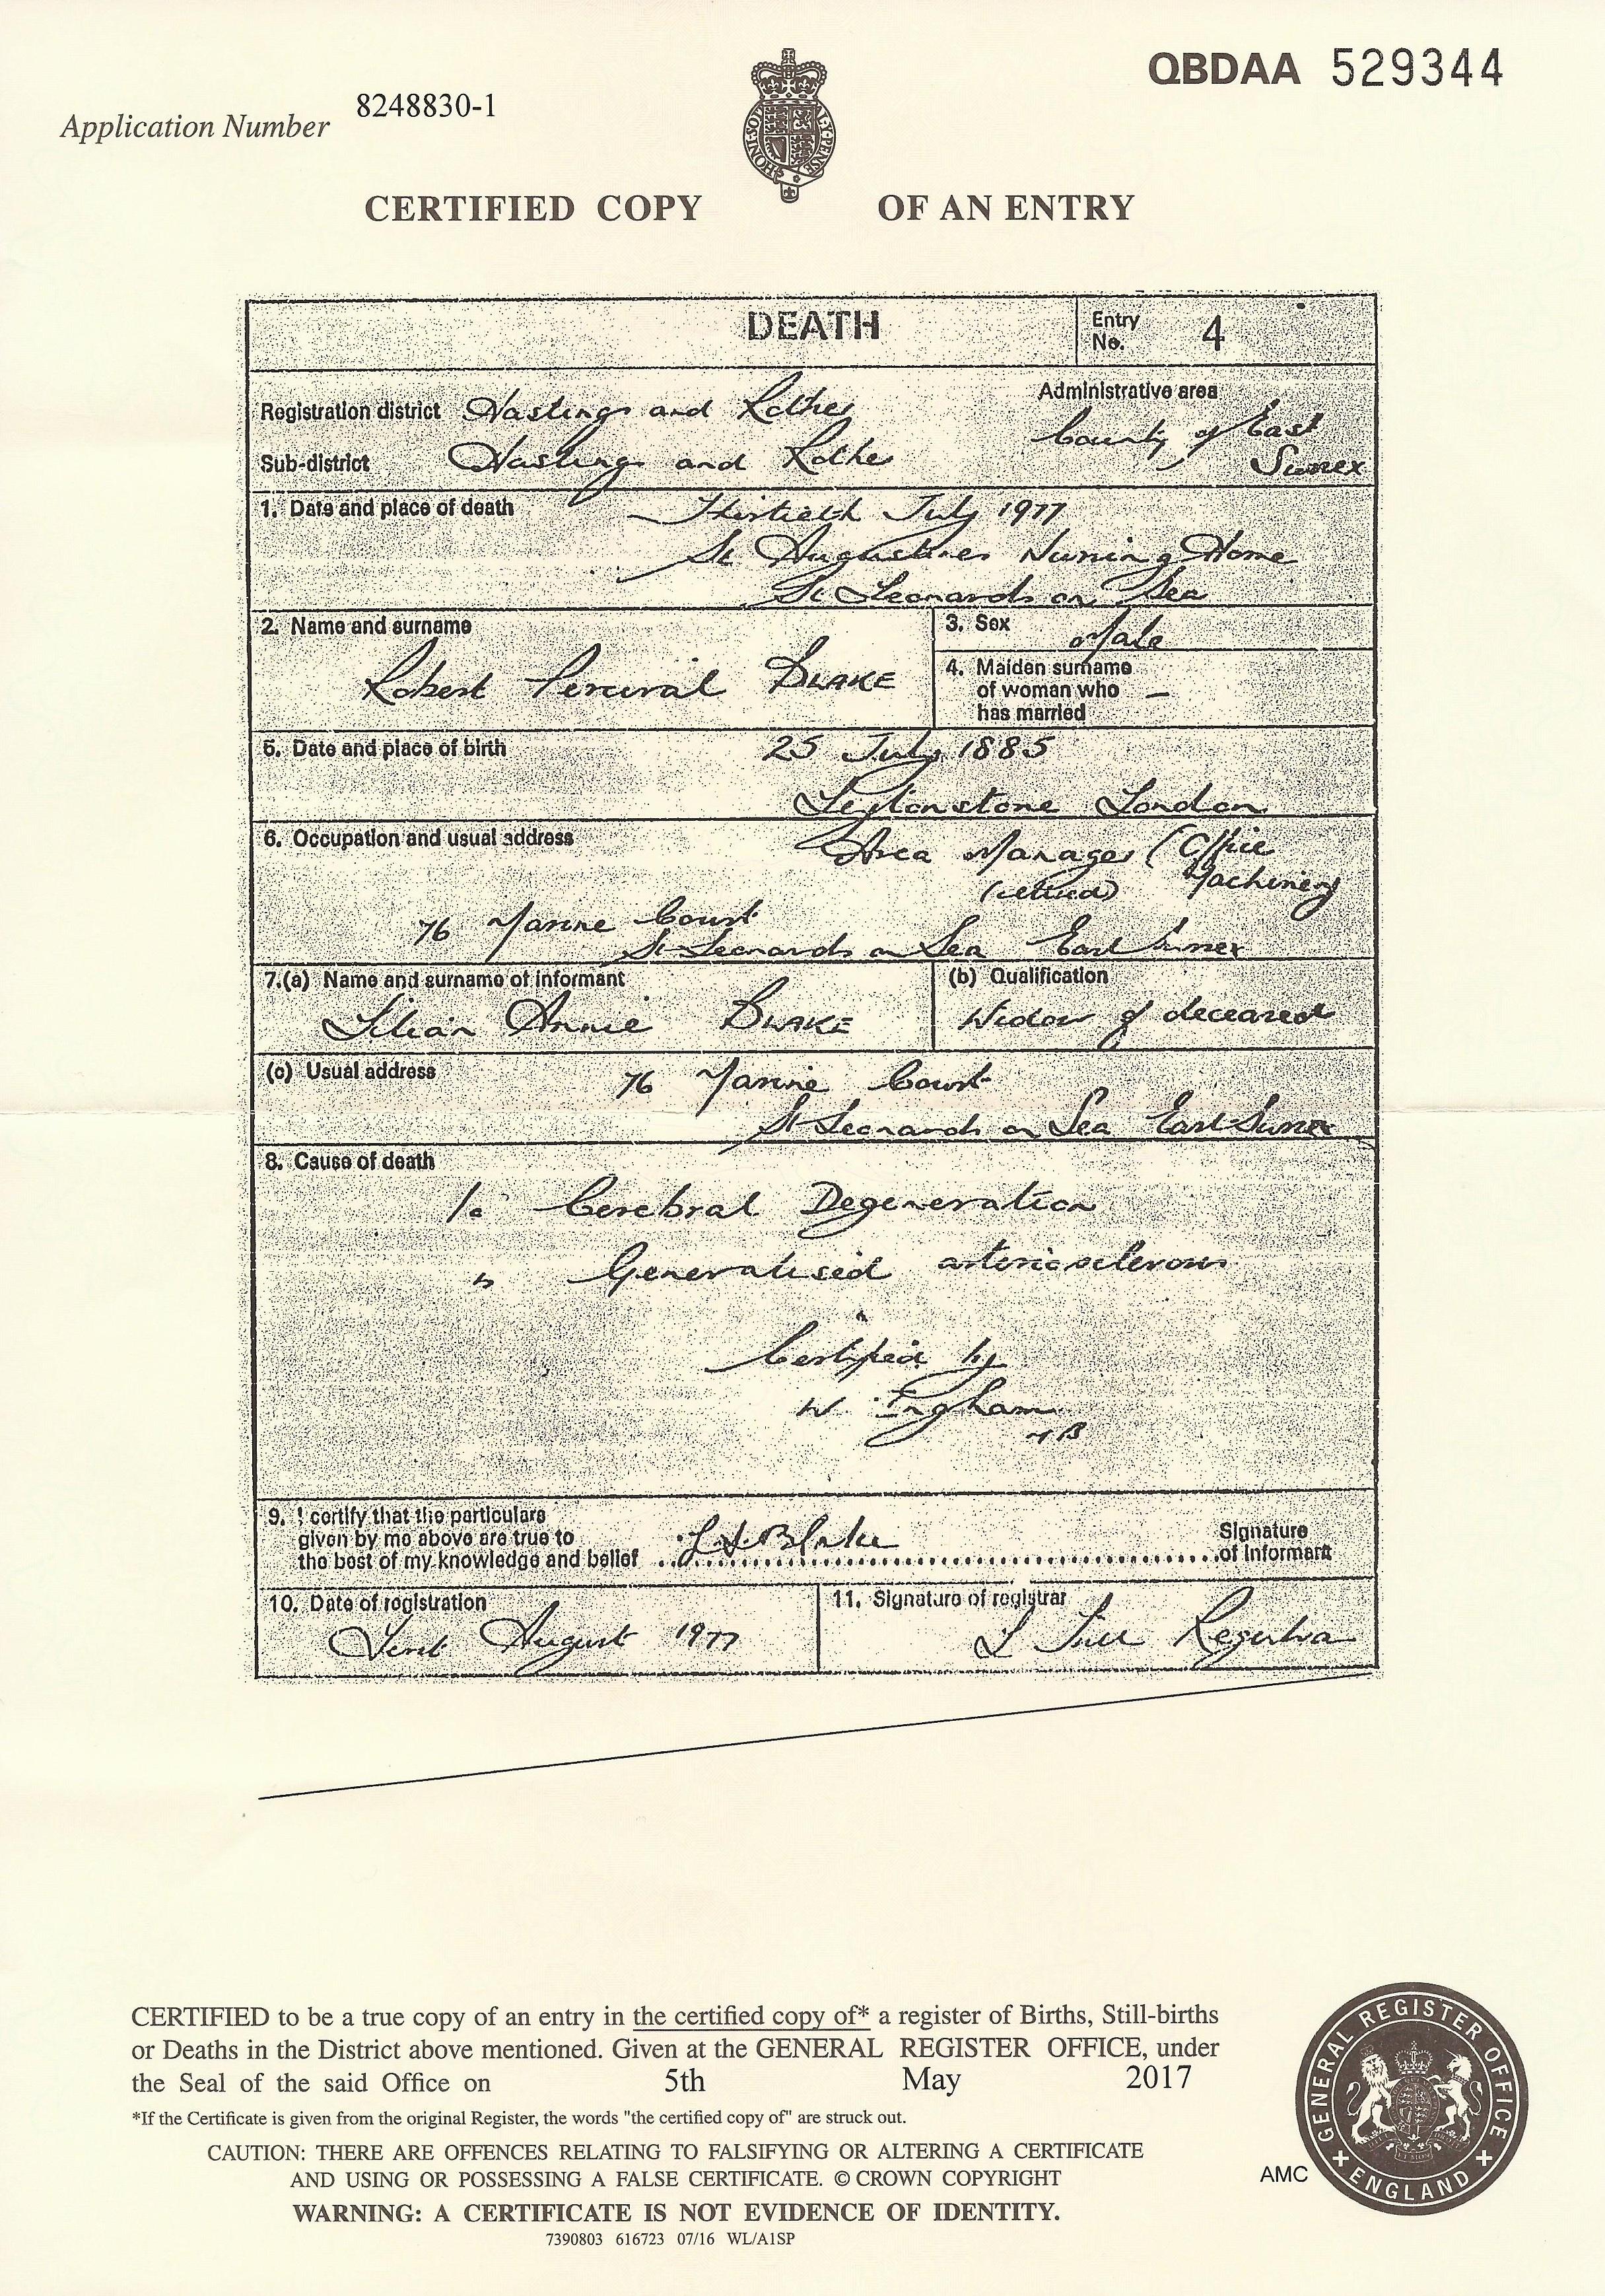 QBDAA 529344
Application Number 8248830-1
HONI·SOIT
CERTIFIED COPY OF AN ENTRY
DEATH
Entry No. 4
Registration district Hastings and Rother
Administrative area
County of East
Sussex
Sub-district Hastings and Rother
1. Date and place of death Thirtieth July 1977
St Augustines Nursing Home
St Leonards on Sea
2. Name and surname
Robert Percival BLAKE
3. Sex Male
4. Maiden surname
of woman who —
has married
5. Date and place of birth 25 July 1885
Leytonstone London
6. Occupation and usual address Area Manager (Office
(retired) Machinery
76 Marine Court
St Leonards on Sea East Sussex
7.(a) Name and surname of informant
Lilian Annie BLAKE
(b) Qualification
Widow of deceased
(c) Usual address 76 Marine Court
St Leonards on Sea East Sussex
8. Cause of death
1a Cerebral Degeneration
b Generalised arteriosclerosis
Certified by
W Ingham
MB
9. I certify that the particulars
given by me above are true to
the best of my knowledge and belief L A Blake Signature
of informant
10. Date of registration
First August 1977
11. Signature of registrar
Registrar
CERTIFIED to be a true copy of an entry in the certified copy of* a register of Births, Still-births
or Deaths in the District above mentioned. Given at the GENERAL REGISTER OFFICE, under
the Seal of the said Office on 5th May 2017
*If the Certificate is given from the original Register, the words "the certified copy of" are struck out.
CAUTION: THERE ARE OFFENCES RELATING TO FALSIFYING OR ALTERING A CERTIFICATE
AND USING OR POSSESSING A FALSE CERTIFICATE. © CROWN COPYRIGHT
WARNING: A CERTIFICATE IS NOT EVIDENCE OF IDENTITY.
7390803 616723 07/16 WL/A1SP
AMC
GENERAL REGISTER OFFICE
ENGLAND